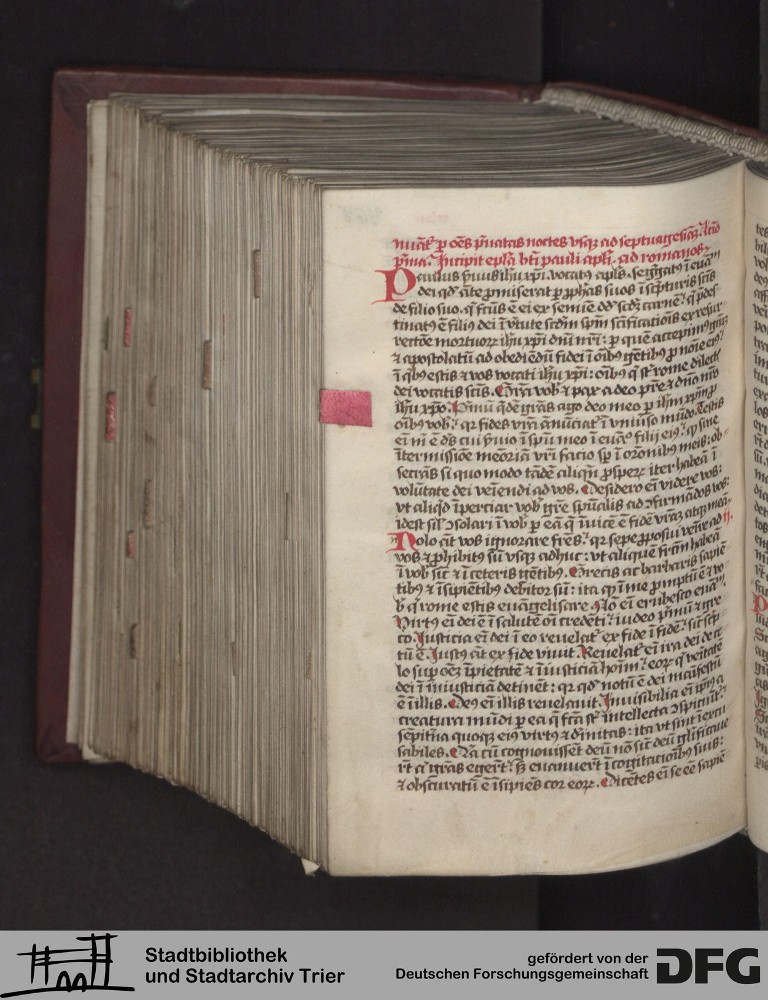 nuāt͛ p̲ oēs p̄uatas noctes vsq̨ ad septuagesiā. Lc̄io
p̄ma. Incipit ep̄la bt̄i pauli apl̄i ad romanos.
Paulus s̄uus ih̄u xp̄i. vocatꝰ apl̄s. seḡgatꝰ ī euā
dei qd̄ āte ꝓmiserat p̲ ꝓph̄as suos ī sc̄pturis sc̄is
de filio suo. q̄ fc̄us ē ei ex semīe dd̄ scd̄z carnē. q̄ p̄des
tinatꝰ ē filiꝰ dei ī v̄tute scd̄m sp̄m sc̄ificatiōis ex resur
rectōe mortuoꝝ ih̄u xp̄i dn̄i nr̄i: p̲ quē accepimꝰ gr̄az
⁊ apostolatū ad obediēdū fidei ī oībꝰ gētibꝰ p̲ noīe eiꝰ
ī qibꝰ estis ⁊ vos vocati ih̄u xp̄i: oībꝰ q̄ st̄ rome dilectꝭ
dei vocatis sc̄is. Gr̄a vob̄ ⁊ pax a deo pr̄e ⁊ dn̄o nr̄o
ih̄u xp̄o. Pimū qdē gr̄as ago deo meo p̲ ih̄m xp̄m ꝓ
oībꝰ vob̄. qr fides vr̄a ānūciat͛ ī vniūso mūdo. Testis
ei m̄ ē d̄s cui s̄uio ī sp̄u meo ī euāꝰ filij eiꝰ. q̄ sine
ītermissiōe meōriā vr̄i facio sp̄ ī or̄onibꝰ meis: ob-
secrās si quo modo tādē aliqn̄ ꝓsperꝝ iter habeā ī
volūtate dei veīendi ad vos. Desidero ei videre vos:
vt aliqd īperciar vob̄ gr̄e spūalis ad ꝯfirmādos vos:
idest sil̄ ꝯsolari ī vob̄ p̲ ea q̄ īuicē ē fidē vr̄az atq̨ meā. II.
Nolo āt vos ignorare fr̄es. qr sepe ꝓposui veīre ad
vos ⁊ ꝓhibitꝰ sū vsq̨ adhuc: vt aliquē frc̄m habeā
ī vob̄ sic̄ ⁊ ī ceteris gētibꝰ. Grecis ac barbaris sapiē
tibꝰ ⁊ īsipiētibꝰ debitor sū: ita q̄ ī me ꝓmptū ē ⁊ vo
b̄ q̄ rome estis euāgelisare. Nō ei erubesco euāꝰ.
Virtꝰ ei dei ē ī salutē oī credēti. iudeo p̄mū ⁊ gre
co. Justicia ei dei ī eo reuelat͛ ex fide ī fidē. sic̄ sc̄p
tū ē. Justꝰ āt ex fide viuit. Reuelat͛ ei ira dei de ce
lo sup̲ oēz īpietatē ⁊ īiusticiā hoīm. eoꝝ q̄ veītatē
dei ī iniusticiā detinēt: qr qd̄ notū ē dei māifestū
ē ī illis. Deꝰ ei illis reuelauit. Inuisibilia ei ip̄iꝰ a
creatura mūdi p̲ ea q̄ fc̄a st̄ intellecta ꝯspiciūt͛.
sēpitn̄a quoq̨ eiꝰ virtꝰ ⁊ diīnitas: ita vt sint īexcu
sabiles. Q̄a cū cognouissēt deū nō sic̄ deū glīficaue
rt̄ aꝰ gr̄as egert̄. s̨ euanuert̄ ī cogitatioībꝰ suis:
⁊ obscuratū ē īsipiēs cor eoꝝ. Dicētes ei se eē sapiē
Stadtbibliothek
und Stadtarchiv Trier
gefördert von der
Deutschen Forschungsgemeinschaft
DFG